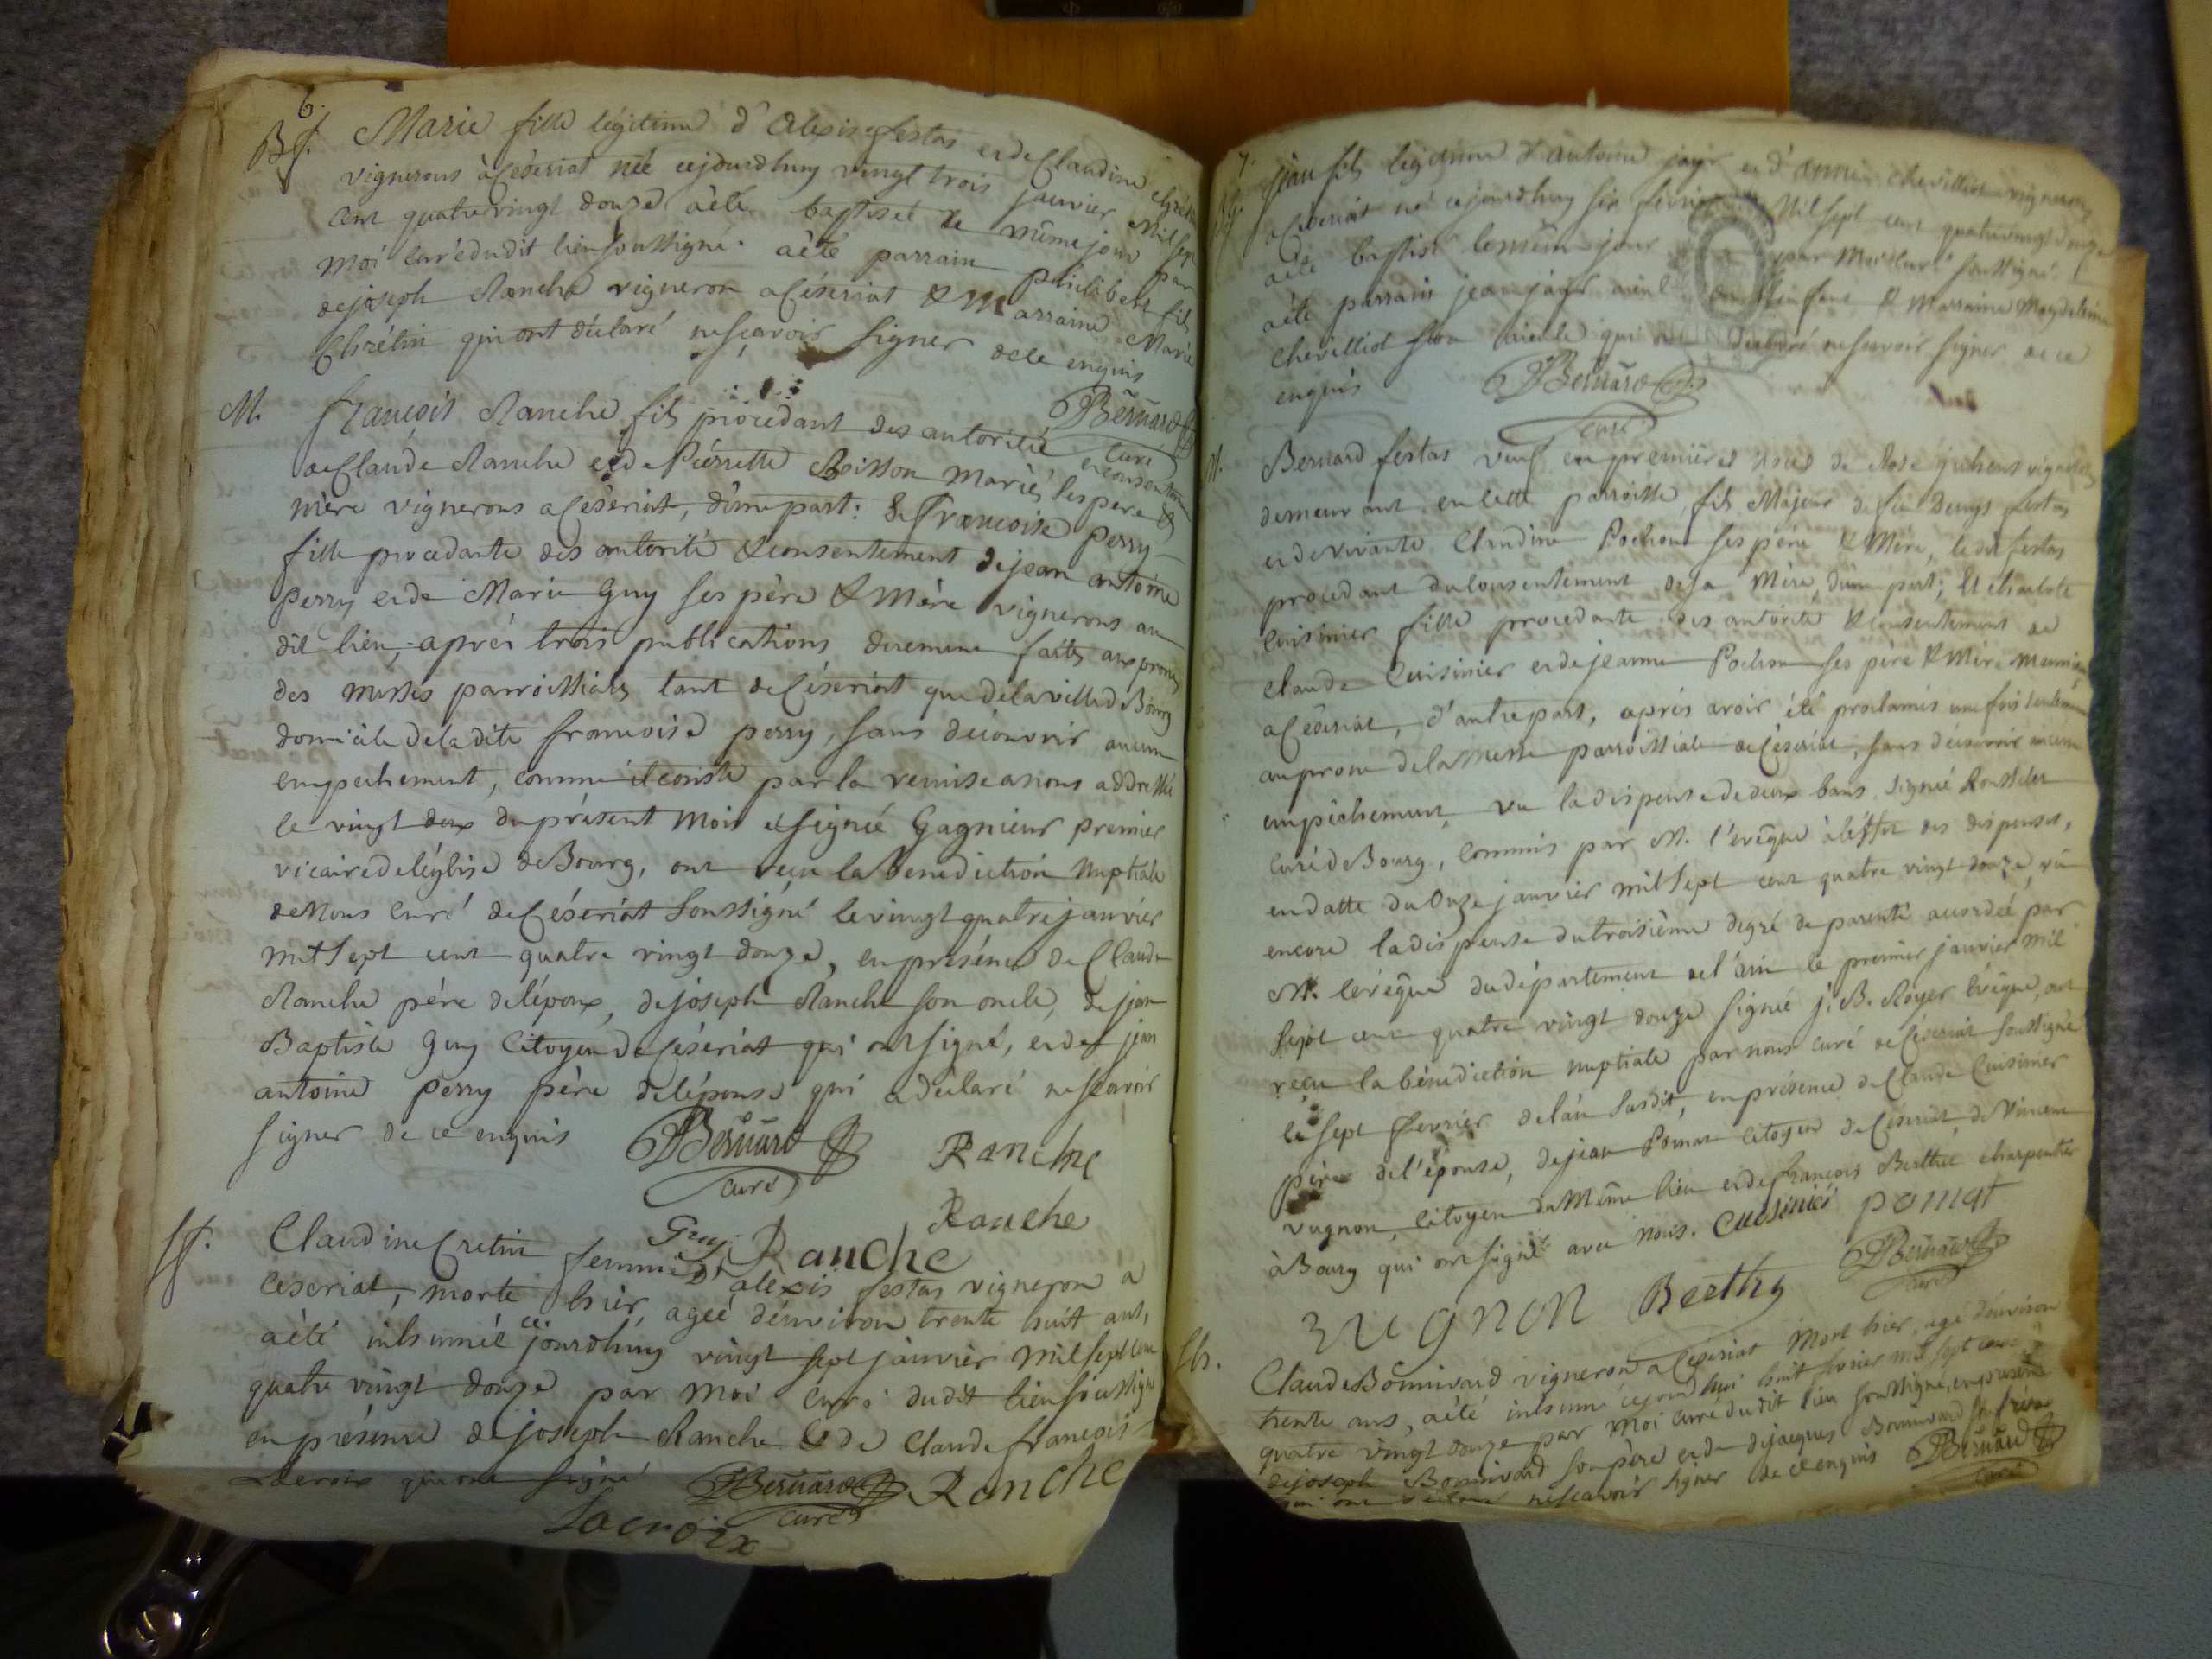 6.
Bf. Marie fille légitime d'Alexis festas et de Claudine chretin
vignerons à Céseriat née cejourdhuy vingt trois janvier Mil sept
cent quatre vingt douze aèté baptiseé le même jour par
moi curé dudit lieu soussigné. aèté parrain philibert fils
de joseph Ranche vigneron a Céseriat & Marraine Marie
Chrétin qui ont déclaré nesçavoir signer de ce enquis
Bernard
curé
M. françois Ranche fils procedant des autorité et consentement
de Claude Ranche et de Pierrette Boisson mariés ses pere &
mère vignerons a Céseriat, d'une part: & françoise perry
fille procedante des autorité & consentement de jean antoine
perry et de Marie Guy ses père & Mère vignerons au
dit lieu, aprés trois publications duement faites aux prones
des messes parroissiales tant de Céseriat que de la ville de Bourg
domicile de la dite françoise perry, sans découvrir aucun
empechement, comme il conste par la remise a nous addressée
le vingt deux du présent mois et signée Gagnieur premier
vicaire de léglise de Bourg, ont reçu la Benediction Nuptiale
de Nous curé de Céseriat soussigné le vingt quatre janvier
mil sept cent quatre vingt douze, en présence de Claude
Ranche pére de lépoux, de joseph Ranche son oncle, de jean
Baptiste Guy Citoyen de Céseriat qui ont signé, et de jean
antoine perry père de lépouse qui a déclaré ne scavoir
signer de ce enquis Bernard Ranche
curé
Ranche
Guy Ranche
Sf. Claudine Cretin femme d'alexis festas vigneron a
Ceseriat, morte hièr, ageé dénviron trente huit ans,
aété inhumée cejourdhuy vingt sept janvièr Mil sept cent
quatre vingt douze par moi curé dudit lieu soussigné
en présence de joseph Ranche & de Claude françois
Lacroix qui ont signé Bernard Ranche
curé
Lacroix
7.
Bg. jean fils légitime d'antoine jayr et d'Annie chevilliot vignerons
a Céseriat né cejourdhuy six février Mil sept cent quatre vingt douze
aèté baptisé le même jour par Moi curé soussigné.
aèté parrain jean jayr aieul de l'enfant & Marraine Magdeleine
Chevilliot son aieule qui ont déclaré ne scavoir signer de ce
enquis Bernard
curé
M. Bernard festas veuf en premières noces de Rose guhens vigneron
demeurant en cette parroisse, fils Majeur de feu Denys festas
et de vivante Claudine Pochon ses père & Mère, ledit festas
procedant du consentement de sa Mère, d'une part; et charlote
Cuisinier fille procedante des autorité & consentement de
claude Cuisinier et de jeanne Pochon ses père & Mère meuniers
a Céseriat, d'autre part, aprés avoir été proclamés une fois seulement
au prone de la Messe parroissiale de Céseriat, sans découvrir aucun
empêchement, vu la dispense de deux bans signée Rousselet
curé de Bourg, commis par M. l'evêque à l'effet des dispenses,
en datte du Onze janvier mil sept cent quatre vingt douze, vu
encore la dispense du troisième degré de parenté accordée par
M. lévêque du département de l'ain le premier janvier mil
sept cent quatre vingt douze signée J. B. Royer Evêque, ont
reçu la bénediction nuptiale par nous curé de Céseriat soussigné
le sept fevrier de l'an susdit, en présence de Claude Cuisinier
père de l'épouse, de jean Pomat citoyen de Céseriat, de Vincent
vugnon, citoyen du Même lieu et de françois Berthié charpentier
à Bourg qui ont signé avec nous. Cuisinier pomat
vugnon Berthy Bernard
curé
Sh. Claude Bonnivard vigneron a Céseriat Mort hier, agé d'environ
trente ans, aété inhumé cejourdhui huit fevrier mil sept cent
quatre vingt douze par Moi curé dudit lieu soussigné, en présence
de joseph Bonnivard son père et de jacques Bonnivard son frère
qui ont déclaré nescavoir signer de ce enquis Bernard
curé